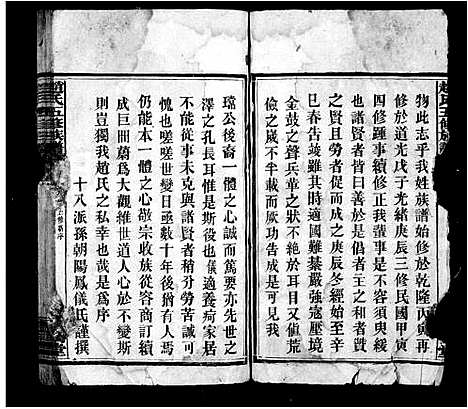 物此志乎我姓族譜始修於乾隆丙寅再
修於道光戊子光緒庚辰三修民國甲寅
四修踵事續修正我輩事是不容須臾緩
也諸賢者皆曰善於是倡者主之和者贊
之賢且勞者促而成之庚辰冬經始至辛
巳春告竣雖其時適國難綦嚴強寇壓境
金鼓之聲兵革之狀不絶於耳目又值荒
歉之歲不半載而厥功告成是可見我
璿公後裔一體之心誠而篤要亦先世之
澤之孔長耳惟是斯役也儀適養疴家居
不能從事未克與諸賢者稍分勞苦誠可
愧也嗟嗟世變日亟數十年後猶有人焉
仍能本一體之心敬宗收族從容商訂續
成巨冊蔚為大觀維世道人心於不變斯
則豈獨我趙氏之私幸也哉是為序
十八派孫朝陽鳳儀氏謹撰
趙氏五修族譜